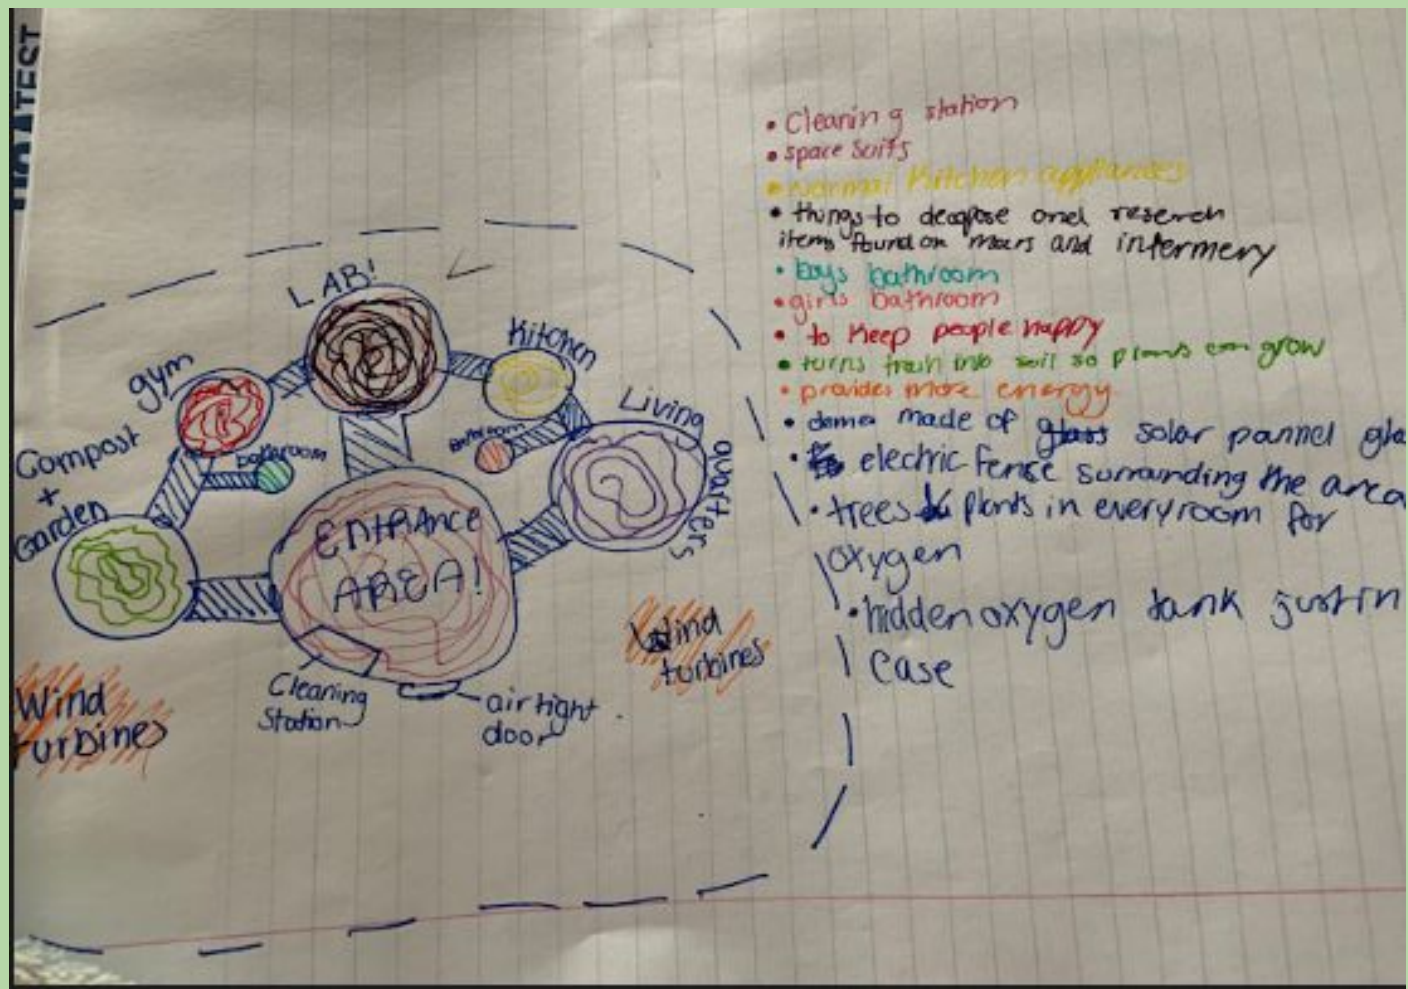 LAB!
Kitchen
gym
Living
quarters
Compost
+
Garden
bathroom
Bathroom
ENTRANCE
AREA!
Wind
turbines
Wind
turbines
Cleaning
Station
air tight
door
• Cleaning station
• space suits
• Normal Kitchen appliances
• things to and research
items found on mars and infermery
• boys bathroom
• girls bathroom
• to Keep people happy
• turns trash into soil so plants can grow
• provides more energy
• dome made of glass solar pannel gla
• electric fense surrounding the area
• trees & plants in every room for
oxygen
• hidden oxygen tank just in
case